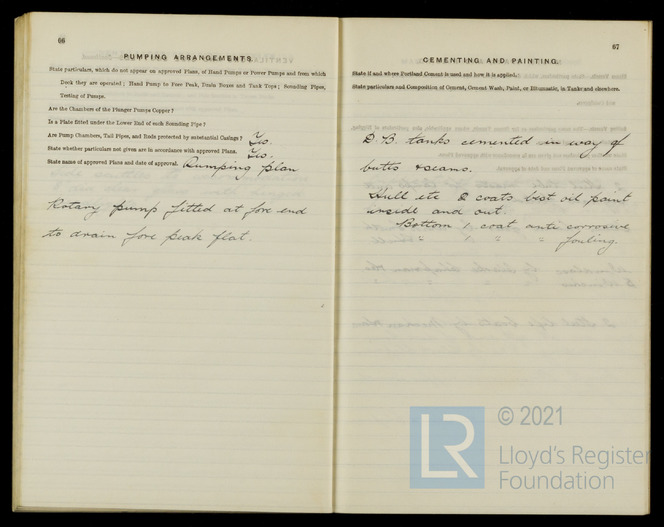 66
PUMPING ARRANGEMENTS.
State particulars, which do not appear on approved Plans, of Hand Pumps or Power Pumps and from which
Deck they are operated; Hand Pump to Fore Peak, Drain Boxes and Tank Tops; Sounding Pipes,
Testing of Pumps.
Are the Chambers of the Plunger Pumps Copper?
Is a Plate fitted under the Lower End of each Sounding Pipe?
Are Pump Chambers, Tail Pipes, and Rods protected by substantial Casings? Yes.
State whether particulars not given are in accordance with approved Plans. Yes.
State name of approved Plans and date of approval. Pumping plan
Rotary pump fitted at fore end
to drain fore peak flat.
67
CEMENTING AND PAINTING.
State if and where Portland Cement is used and how it is applied.
State particulars and Composition of Cement, Cement Wash, Paint, or Bitumastic, in Tanks and elsewhere.
D.B. tanks cemented in way of
butts & seams.
Hull etc 2 coats best oil paint
inside and out.
Bottom 1 coat anti corrosive
" 1 " " fouling.
LR
© 2021
Lloyd's Register
Foundation